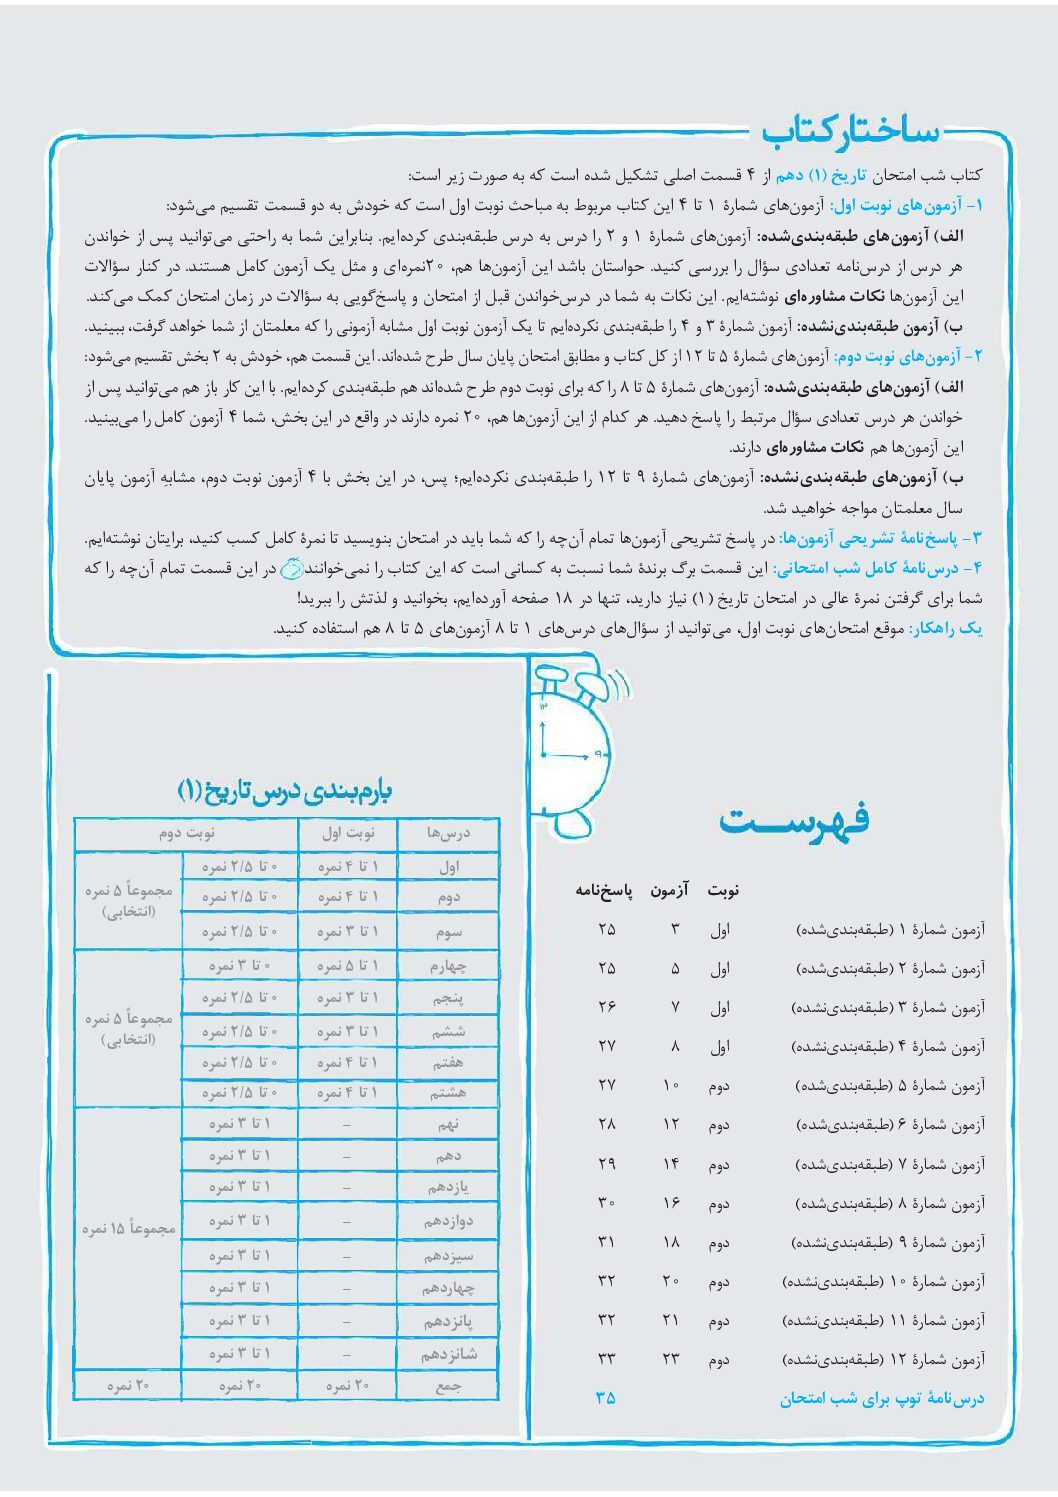 ساختار کتاب
کتاب شب امتحان تاریخ (۱) دهم از ۴ قسمت اصلی تشکیل شده است که به صورت زیر است:
۱- آزمون‌های نوبت اول: آزمون‌های شمارهٔ ۱ تا ۴ این کتاب مربوط به مباحث نوبت اول است که خودش به دو قسمت تقسیم می‌شود:
الف) آزمون‌های طبقه‌بندی‌شده: آزمون‌های شمارهٔ ۱ و ۲ را درس به درس طبقه‌بندی کرده‌ایم. بنابراین شما به راحتی می‌توانید پس از خواندن
هر درس از درس‌نامه تعدادی سؤال را بررسی کنید. حواستان باشد این آزمون‌ها هم، ۲۰نمره‌ای و مثل یک آزمون کامل هستند. در کنار سؤالات
این آزمون‌ها نکات مشاوره‌ای نوشته‌ایم. این نکات به شما در درس‌خواندن قبل از امتحان و پاسخ‌گویی به سؤالات در زمان امتحان کمک می‌کند.
ب) آزمون طبقه‌بندی‌نشده: آزمون شمارهٔ ۳ و ۴ را طبقه‌بندی نکرده‌ایم تا یک آزمون نوبت اول مشابه آزمونی را که معلمتان از شما خواهد گرفت، ببینید.
۲- آزمون‌های نوبت دوم: آزمون‌های شمارهٔ ۵ تا ۱۲ از کل کتاب و مطابق امتحان پایان سال طرح شده‌اند. این قسمت هم، خودش به ۲ بخش تقسیم می‌شود:
الف) آزمون‌های طبقه‌بندی‌شده: آزمون‌های شمارهٔ ۵ تا ۸ را که برای نوبت دوم طرح شده‌اند هم طبقه‌بندی کرده‌ایم. با این کار باز هم می‌توانید پس از
خواندن هر درس تعدادی سؤال مرتبط را پاسخ دهید. هر کدام از این آزمون‌ها هم، ۲۰ نمره دارند در واقع در این بخش، شما ۴ آزمون کامل را می‌بینید.
این آزمون‌ها هم نکات مشاوره‌ای دارند.
ب) آزمون‌های طبقه‌بندی‌نشده: آزمون‌های شمارهٔ ۹ تا ۱۲ را طبقه‌بندی نکرده‌ایم؛ پس، در این بخش با ۴ آزمون نوبت دوم، مشابهِ آزمون پایان
سال معلمتان مواجه خواهید شد.
۳- پاسخ‌نامهٔ تشریحی آزمون‌ها: در پاسخ تشریحی آزمون‌ها تمام آن‌چه را که شما باید در امتحان بنویسید تا نمرهٔ کامل کسب کنید، برایتان نوشته‌ایم.
۴- درس‌نامهٔ کامل شب امتحانی: این قسمت برگ برندهٔ شما نسبت به کسانی است که این کتاب را نمی‌خوانند در این قسمت تمام آن‌چه را که
شما برای گرفتن نمرهٔ عالی در امتحان تاریخ (۱) نیاز دارید، تنها در ۱۸ صفحه آورده‌ایم، بخوانید و لذتش را ببرید!
یک راهکار: موقع امتحان‌های نوبت اول، می‌توانید از سؤال‌های درس‌های ۱ تا ۸ آزمون‌های ۵ تا ۸ هم استفاده کنید.
۱۲
۹
فهرست
نوبت آزمون پاسخ‌نامه
آزمون شمارهٔ ۱ (طبقه‌بندی‌شده) اول ۳ ۲۵
آزمون شمارهٔ ۲ (طبقه‌بندی‌شده) اول ۵ ۲۵
آزمون شمارهٔ ۳ (طبقه‌بندی‌نشده) اول ۷ ۲۶
آزمون شمارهٔ ۴ (طبقه‌بندی‌نشده) اول ۸ ۲۷
آزمون شمارهٔ ۵ (طبقه‌بندی‌شده) دوم ۱۰ ۲۷
آزمون شمارهٔ ۶ (طبقه‌بندی‌شده) دوم ۱۲ ۲۸
آزمون شمارهٔ ۷ (طبقه‌بندی‌شده) دوم ۱۴ ۲۹
آزمون شمارهٔ ۸ (طبقه‌بندی‌شده) دوم ۱۶ ۳۰
آزمون شمارهٔ ۹ (طبقه‌بندی‌نشده) دوم ۱۸ ۳۱
آزمون شمارهٔ ۱۰ (طبقه‌بندی‌نشده) دوم ۲۰ ۳۲
آزمون شمارهٔ ۱۱ (طبقه‌بندی‌نشده) دوم ۲۱ ۳۲
آزمون شمارهٔ ۱۲ (طبقه‌بندی‌نشده) دوم ۲۳ ۳۳
درس‌نامهٔ توپ برای شب امتحان ۳۵
بارم‌بندی درس تاریخ (۱)
درس‌ها نوبت اول نوبت دوم
اول ۱ تا ۴ نمره ۰ تا ۲/۵ نمره
دوم ۱ تا ۴ نمره ۰ تا ۲/۵ نمره
سوم ۱ تا ۳ نمره ۰ تا ۲/۵ نمره
مجموعاً ۵ نمره
(انتخابی)
چهارم ۱ تا ۵ نمره ۰ تا ۳ نمره
پنجم ۱ تا ۳ نمره ۰ تا ۲/۵ نمره
ششم ۱ تا ۳ نمره ۰ تا ۲/۵ نمره
هفتم ۱ تا ۴ نمره ۰ تا ۲/۵ نمره
هشتم ۱ تا ۴ نمره ۰ تا ۲/۵ نمره
مجموعاً ۵ نمره
(انتخابی)
نهم – ۱ تا ۳ نمره
دهم – ۱ تا ۳ نمره
یازدهم – ۱ تا ۳ نمره
دوازدهم – ۱ تا ۳ نمره
سیزدهم – ۱ تا ۳ نمره
چهاردهم – ۱ تا ۳ نمره
پانزدهم – ۱ تا ۳ نمره
شانزدهم – ۱ تا ۳ نمره
مجموعاً ۱۵ نمره
جمع ۲۰ نمره ۲۰ نمره ۲۰ نمره